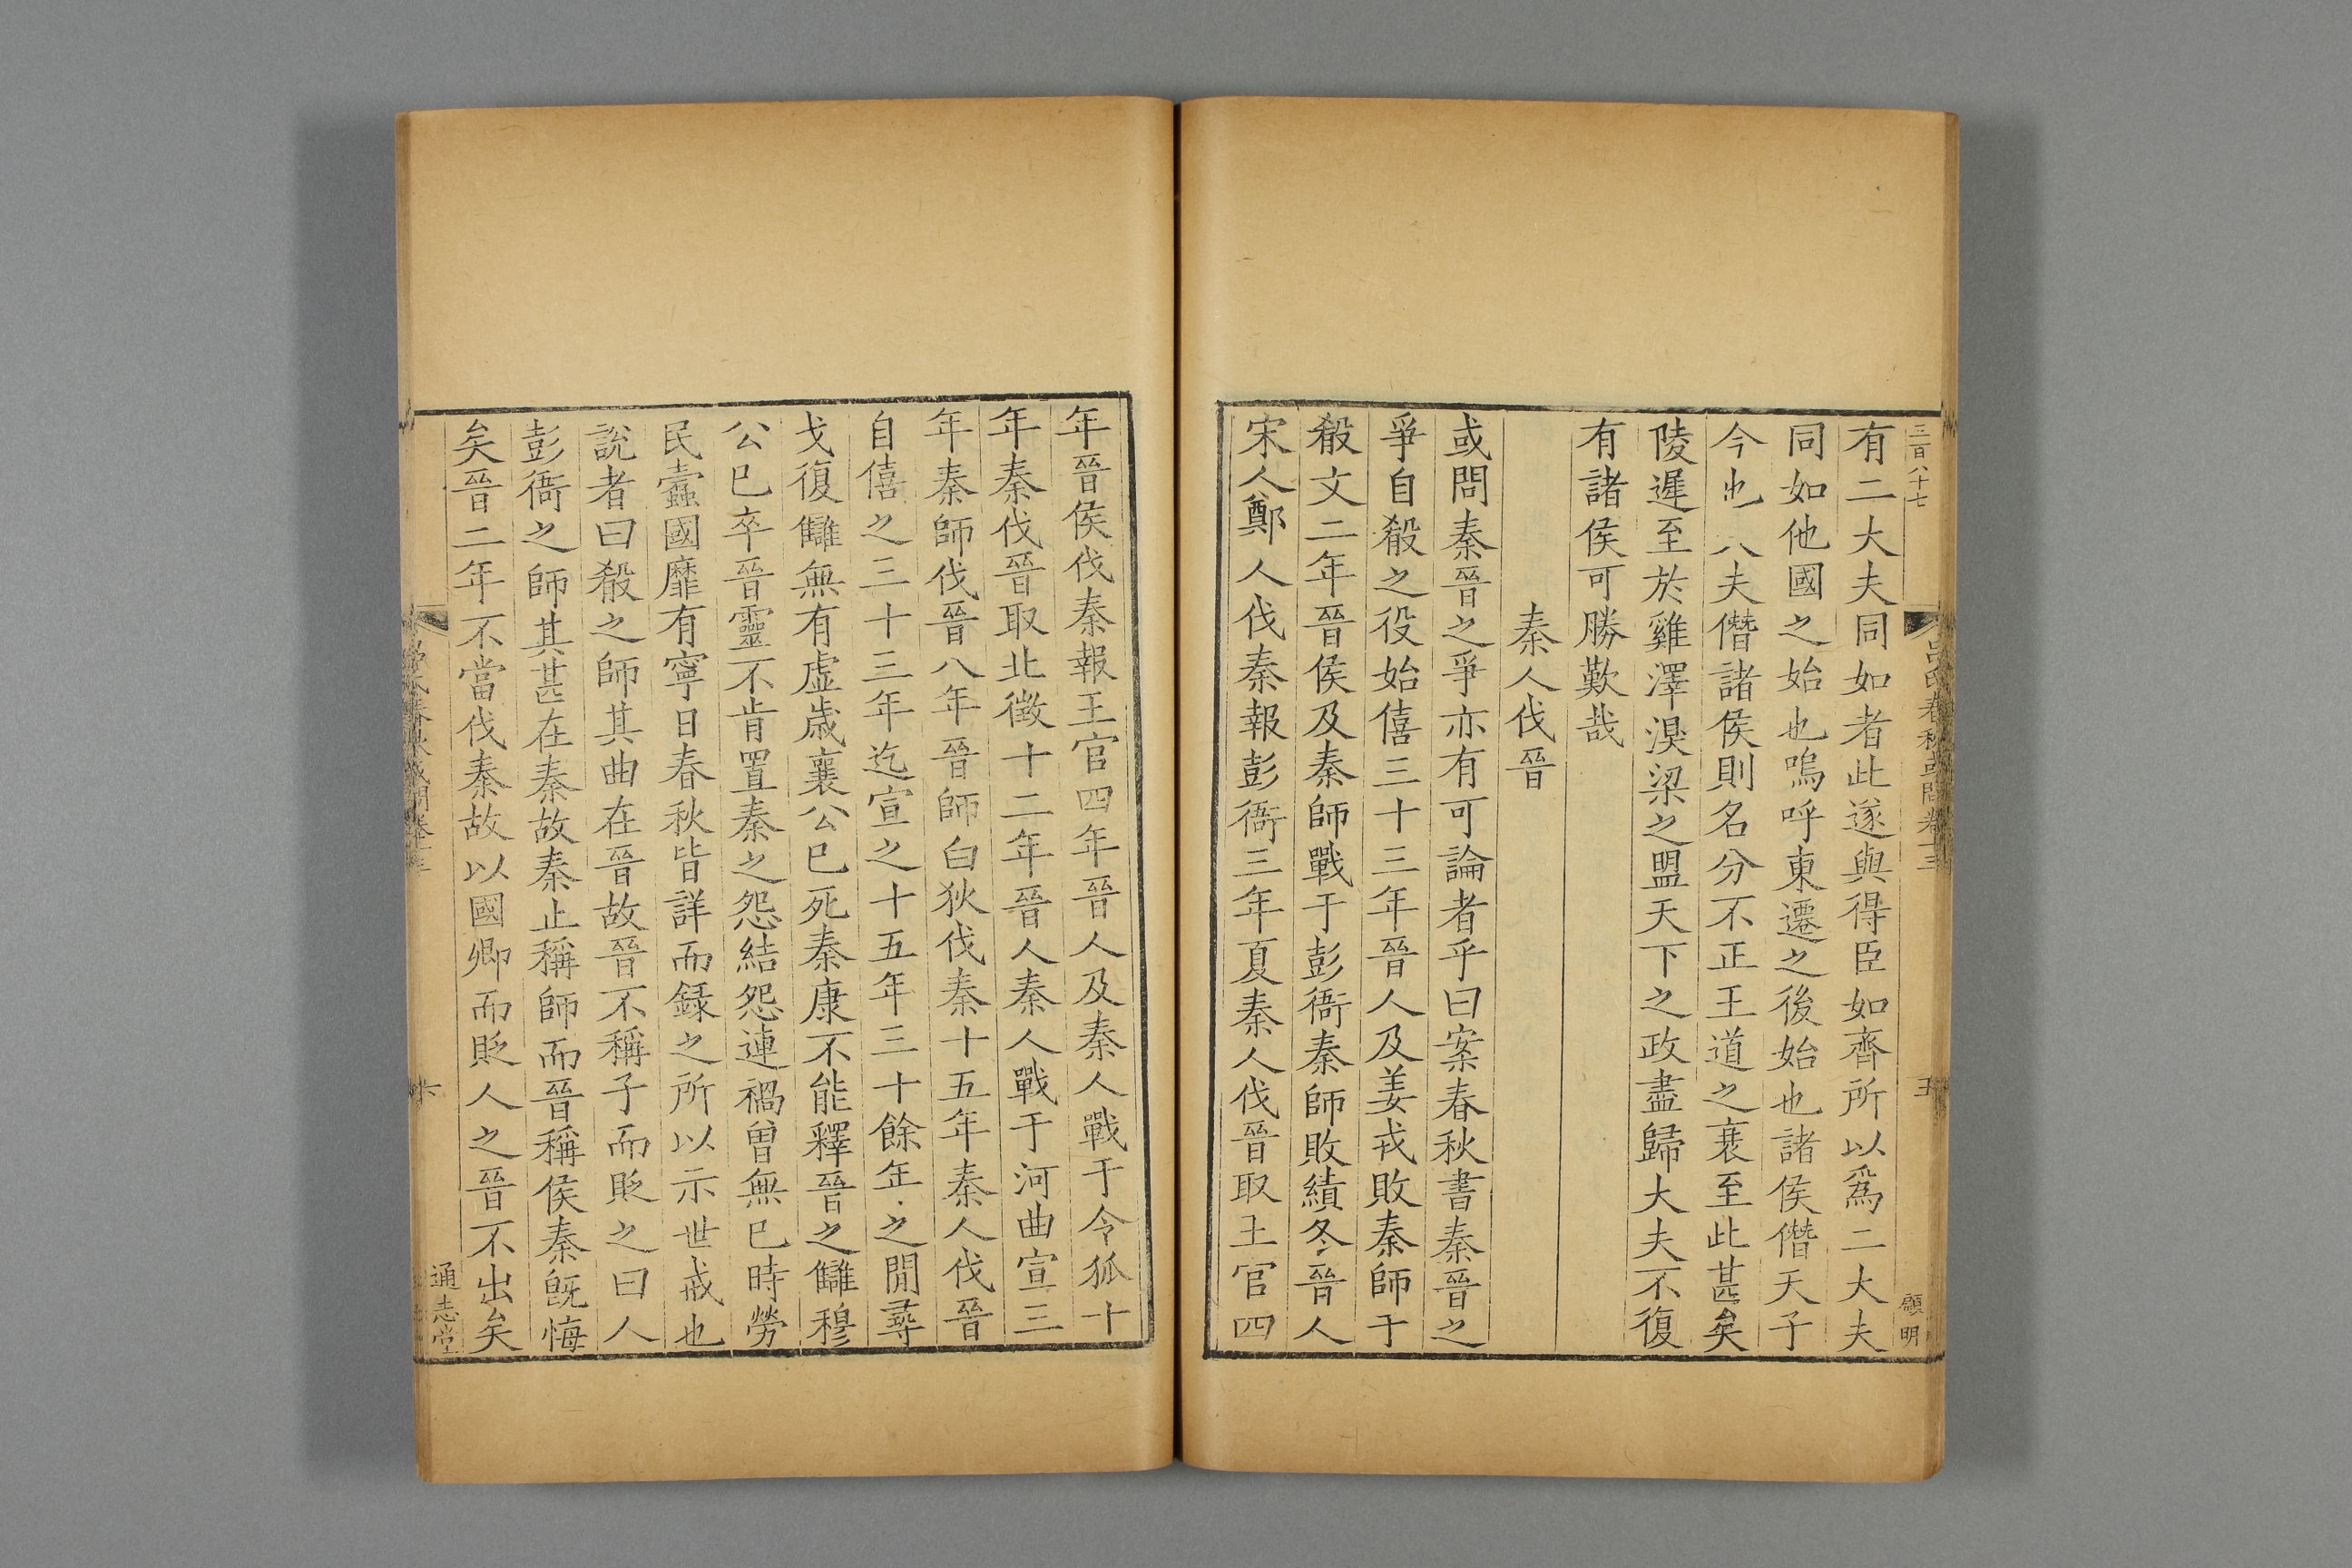 三百八十七
有二大夫同如者此遂與得臣如齊所以爲二大夫
同如他國之始也嗚呼東遷之後始也諸侯僭天子
今也大夫僭諸侯則名分不正王道之衰至此甚矣
陵遲至於雞澤湨梁之盟天下之政盡歸大夫不復
有諸侯可勝歎哉
秦人伐晉
或問秦晉之爭亦有可論者乎曰案春秋書秦晉之
爭自殽之役始僖三十三年晉人及姜戎敗秦師于
殽文二年晉侯及秦師戰于彭衙秦師敗績冬晉人
宋人鄭人伐秦報彭衙三年夏秦人伐晉取王官四
呂氏春秋或問卷十三
五
顧明
年晉侯伐秦報王官四年晉人及秦人戰于令狐十
年秦伐晉取北徵十二年晉人秦人戰于河曲宣三
年秦師伐晉八年晉師白狄伐秦十五年秦人伐晉
自僖之三十三年迄宣之十五年三十餘年之閒尋
戈復讎無有虛歲襄公已死秦康不能釋晉之讎穆
公已卒晉靈不肯置秦之怨結怨連禍曾無已時勞
民蠹國靡有寧日春秋皆詳而錄之所以示世戒也
說者曰殽之師其曲在晉故晉不稱子而貶之曰人
彭衙之師其甚在秦故秦止稱師而晉稱侯秦旣悔
矣晉二年不當伐秦故以國卿而貶人之晉不出矣
六
通志堂